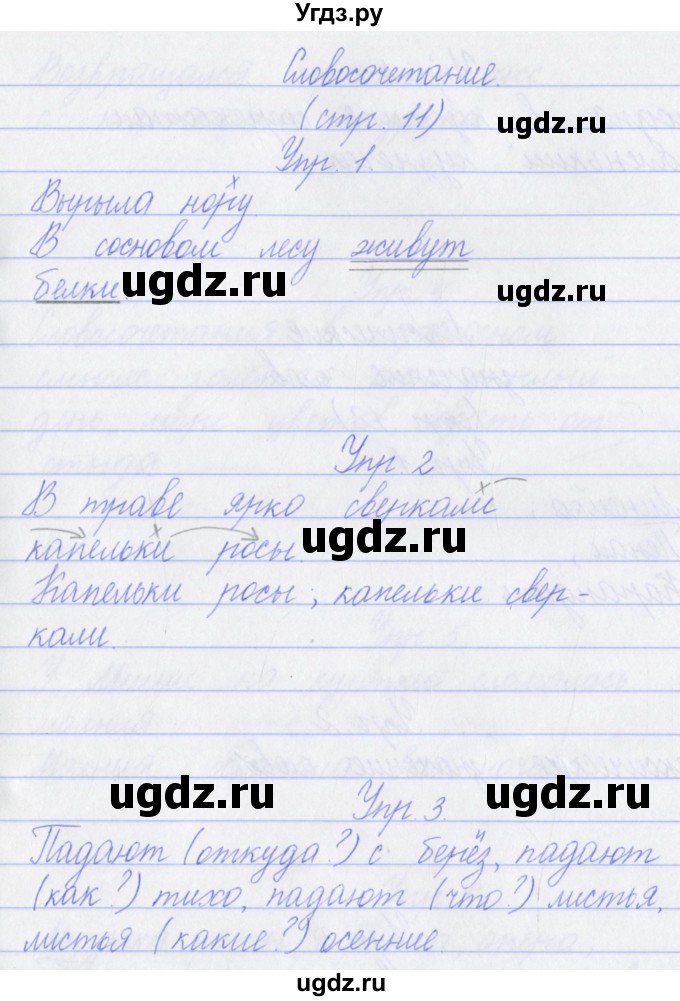 Угдз.ру
Словосочетание.
(стр. 11)
ugdz.ru
Упр. 1
Вырыла нору.
В сосновом лесу живут
ugdz.ru
белки.
Упр. 2
В траве ярко сверкали
ugdz.ru
капельки росы.
Капельки росы, капельки свер-
кали.
ugdz.ru ugdz.ru
Упр. 3
Падают (откуда?) с берёз, падают
(как?) тихо, падают (что?) листья,
листья (какие?) осенние.
ugdz.ru